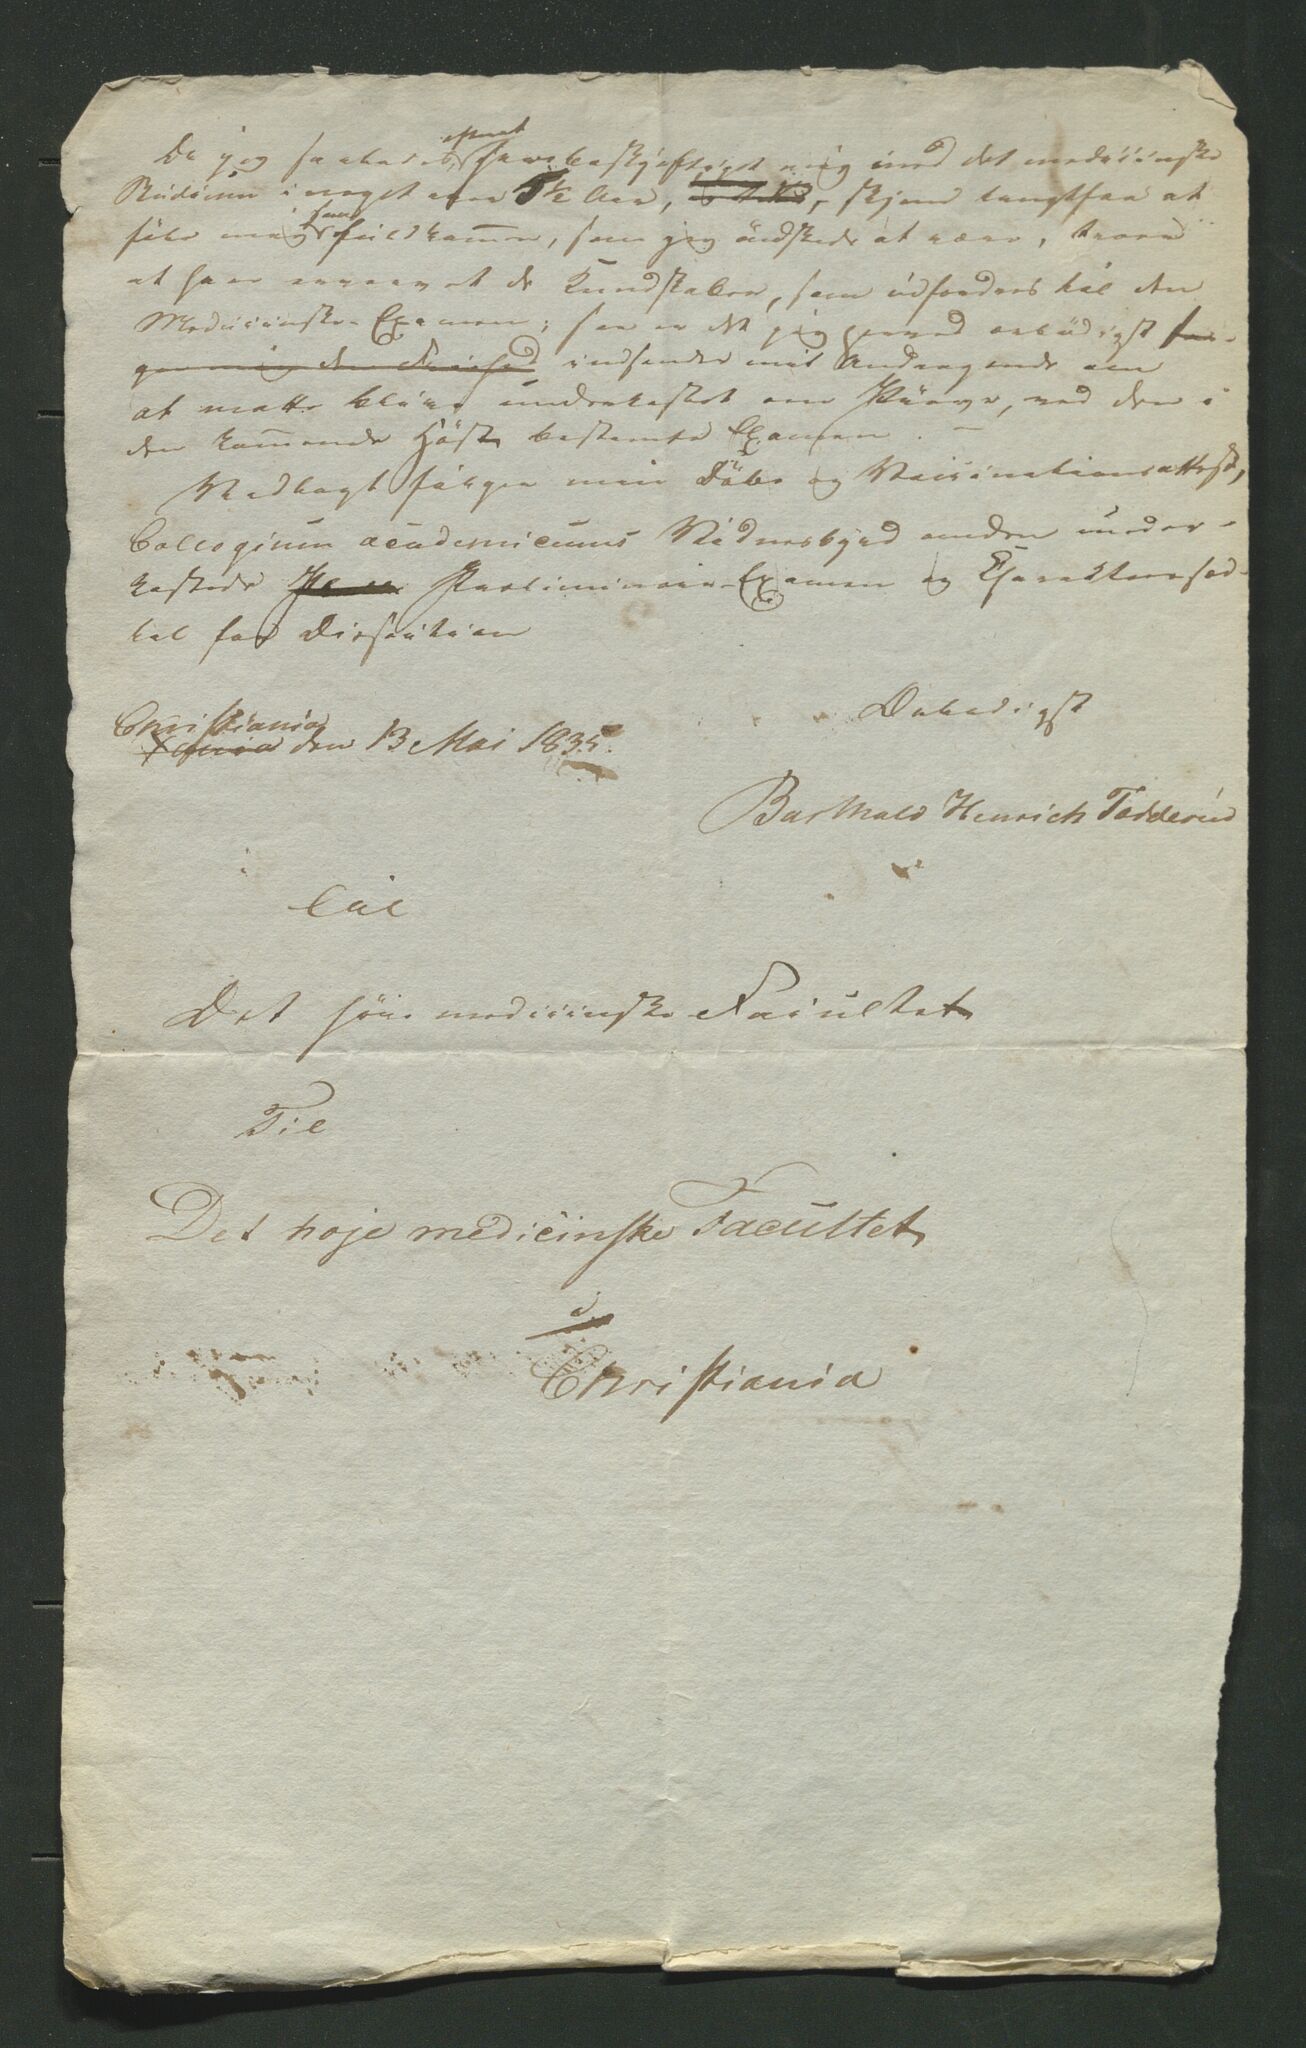 Da jeg saaledes efter at have beskjæftiget mig med det medicinske
Studium i noget over 5½ Aar, skjønt langtfra at
føle mig saa fuldkommen, som jeg ønskede at være, troer
at have erhvervet de Kundskaber, som udfordres til den
Medicinske-Examen; saa er det jeg herved ærbødigst
indsender mit Andragende om
at maatte blive underkastet en Prøve, ved den i
den kommende Høst bestemte Examen. —
Vedlagt følger min Døbe og Vaccinationsattest,
Collegium academicums Vidnesbyrd om den under-
kastede Præliminair-Examen og Charakterssed-
del for Dissection
Christiania
den 13 Mai 1835.
Ærbødigst
Barthold Henrich Todderud
Til
Det høie medicinske Facultet
Til
Det høje medicinske Facultet
i
Christiania